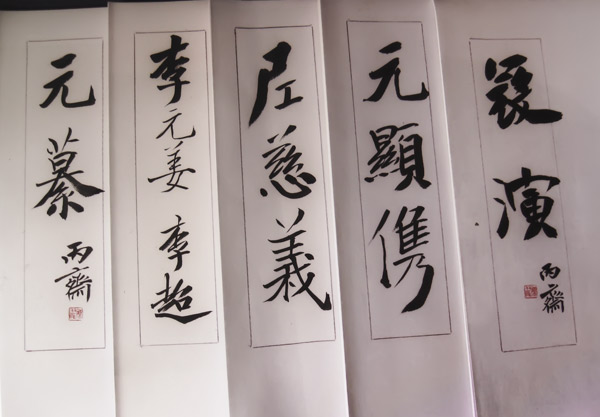 寇演
丙齋
元顯儁
尼慈義
李元姜 李超
元纂
丙齋